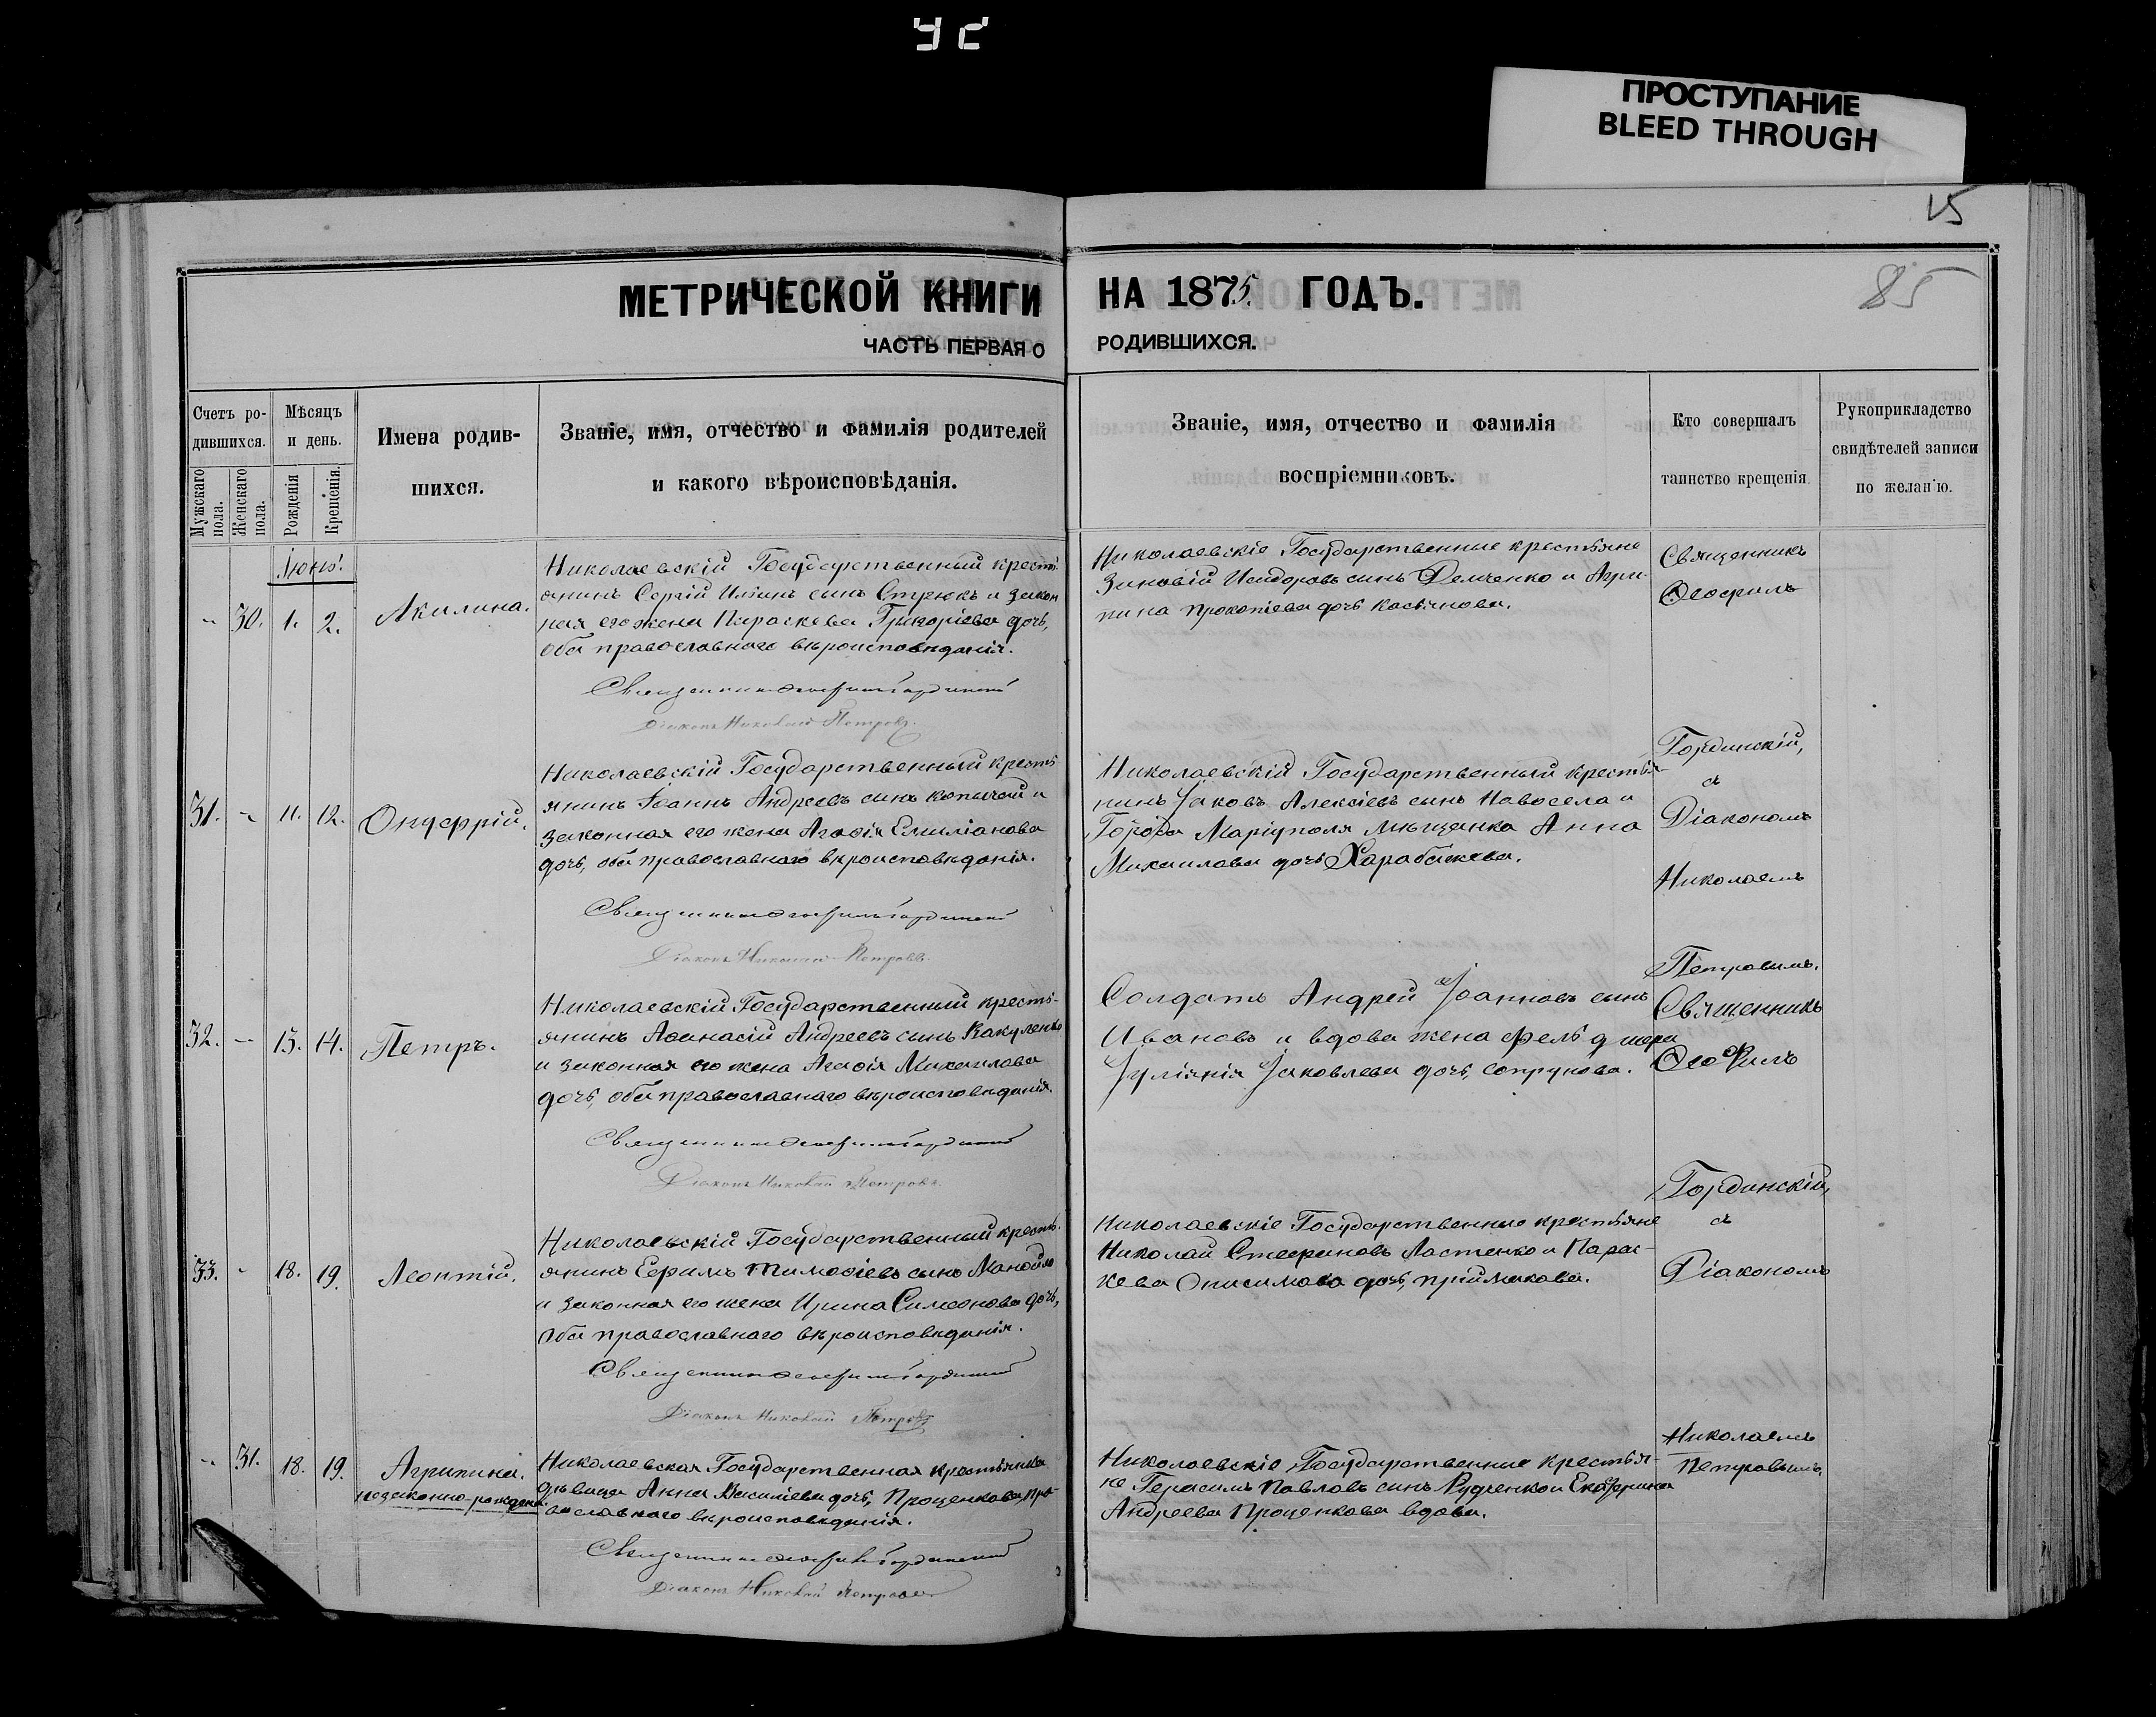 ЧЕ
ПРОСТУПАНИЕ
BLEED THROUGH
15
85
МЕТРИЧЕСКОЙ КНИГИ НА 1875. ГОДЪ.
ЧАСТЬ ПЕРВАЯ О РОДИВШИХСЯ.
Счетъ ро-
дившихся.
Мужскаго
пола.
Женскаго
пола.
Мѣсяцъ
и день.
Рожденія
Крещенія.
Имена родив-
шихся.
Званіе, имя, отчество и фамилія родителей
и какого вѣроисповѣданія.
Званіе, имя, отчество и фамилія
воспріемниковъ.
Кто совершалъ
таинство крещенія.
Рукоприкладство
свидѣтелей записи
по желанію.
Іюнь.
30. 1. 2. Акилина.
Николаевскій Государственный кресть-
янинъ Сергій Иліинъ сынъ Стрюкъ и закон
ная его жена Параскева Григоріева дочь,
оба православнаго вѣроисповѣданія.
Священникъ Ѳеофилъ Гординскій
Діаконъ Николай Петровъ.
Николаевскіе Государственные крестьяне
Зиновій Исидоровъ сынъ Демченко и Агри-
пина Прокопіева дочь Касьянова.
Священникъ
Ѳеофилъ
Гординскій,
съ
Діакономъ
Николаемъ
Петровымъ.
31. - 11. 12. Онуфрій.
Николаевскій Государственный кресть
янинъ Іоаннъ Андреевъ сынъ и
законная его жена Агафія Емиліанова
дочь, оба православнаго вѣроисповѣданія.
Священникъ Ѳеофилъ Гординскій
Діаконъ Николай Петровъ.
Николаевскій Государственный крестья-
нинъ Іаковъ Алексіевъ сынъ Новосела и
Города Маріуполя мѣщанка Анна
Михаилова дочь Харабажева.
32. - 13. 14. Петръ.
Николаевскій Государственный кресть-
янинъ Аѳанасій Андреевъ сынъ Какуленко
и законная его жена Агафія Михаилова
дочь, оба православнаго вѣроисповѣданія.
Священникъ Ѳеофилъ Гординскій
Діаконъ Николай Петровъ.
Солдатъ Андрей Іоанновъ сынъ
Ивановъ и вдова жена фельдшера
Іуліанія Іаковлева дочь, Сопрунова.
Священникъ
Ѳеофилъ
Гординскій,
съ
Діакономъ
Николаемъ
Петровымъ.
33. - 18. 19. Леонтій.
Николаевскій Государственный кресть-
янинъ Ефимъ Тимоѳіевъ сынъ Манойло
и законная его жена Ирина Симеонова дочь,
оба православнаго вѣроисповѣданія.
Священникъ Ѳеофилъ Гординскій
Діаконъ Николай Петровъ
Николаевскіе Государственные крестьяне
Николай Стефановъ Ластенко и Парас-
кева Онисимова дочь, Пріймакова.
31. 18. 19. Агрипина.
незаконно-рожден.
Николаевская Государственная крестьянка
дѣвица Анна Василіева дочь, Проценкова, пра-
вославнаго вѣроисповѣданія.
Священникъ Ѳеофилъ Гординскій
Діаконъ Николай Петровъ
Николаевскіе Государственные крестья-
не Герасимъ Павловъ сынъ Рудченко и Екатерина
Андреева Проценкова вдова.